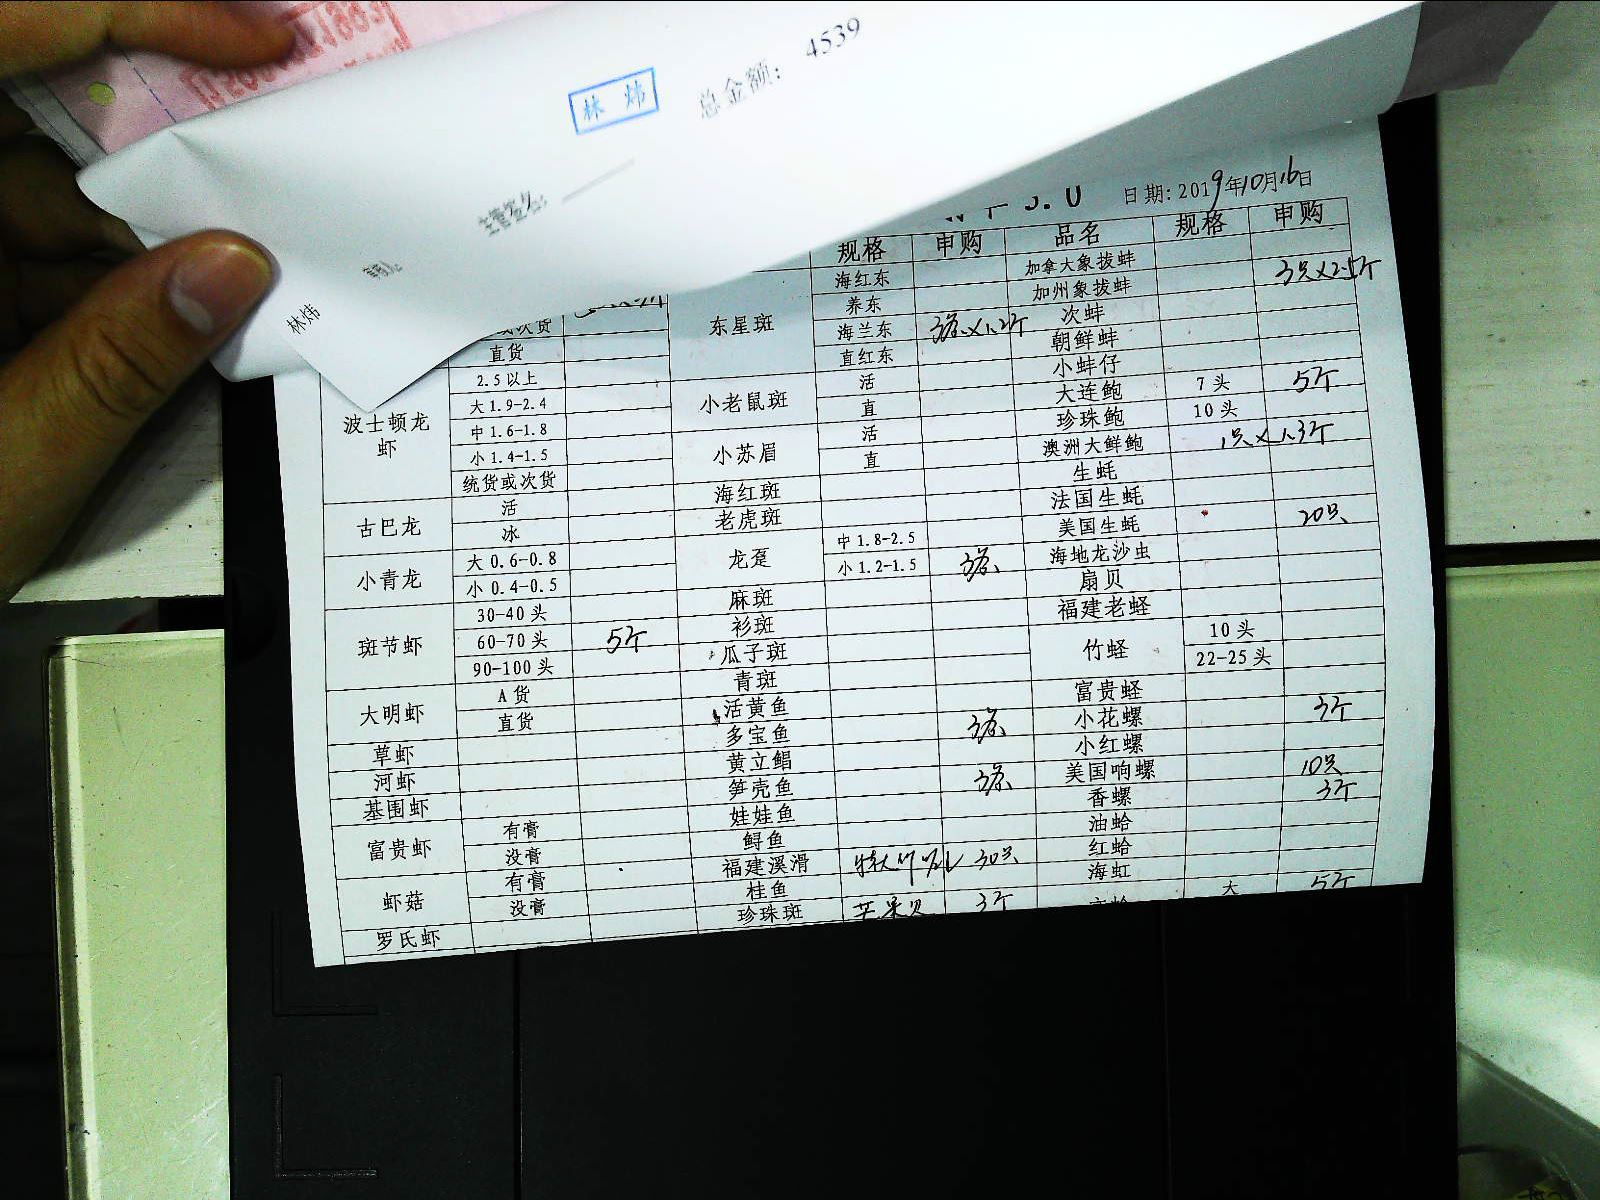 林炜
总金额: 4539
主管签名:
林炜
日期: 2019年10月16日
规格 申购 品名 规格 申购
海红东 加拿大象拔蚌
养东 加州象拔蚌 3只×2.5斤
东星斑 海兰东 3条×1.2斤 次蚌
或次货 直红东 朝鲜蚌
直货 小蚌仔
2.5以上 小老鼠斑 活 大连鲍 7头 5斤
波士顿龙虾 大1.9-2.4 直 珍珠鲍 10头
中1.6-1.8 小苏眉 活 澳洲大鲜鲍 1只×1.3斤
小1.4-1.5 直 生蚝
统货或次货 海红斑 法国生蚝
古巴龙 活 老虎斑 美国生蚝 20只
冰 龙趸 中1.8-2.5 海地龙沙虫
小青龙 大0.6-0.8 小1.2-1.5 3条 扇贝
小0.4-0.5 麻斑 福建老蛏
斑节虾 30-40头 杉斑 竹蛏 10头
60-70头 5斤 瓜子斑 22-25头
90-100头 青斑 富贵蛏
大明虾 A货 活黄鱼 小花螺 3斤
直货 多宝鱼 3条 小红螺
草虾 黄立鲳 美国响螺 10只
河虾 笋壳鱼 3条 香螺 3斤
基围虾 娃娃鱼 油蛤
富贵虾 有膏 鲟鱼 红蛤
没膏 福建溪滑 30只 海虹
虾菇 有膏 桂鱼 大 5斤
没膏 珍珠斑 芒果贝 3斤
罗氏虾